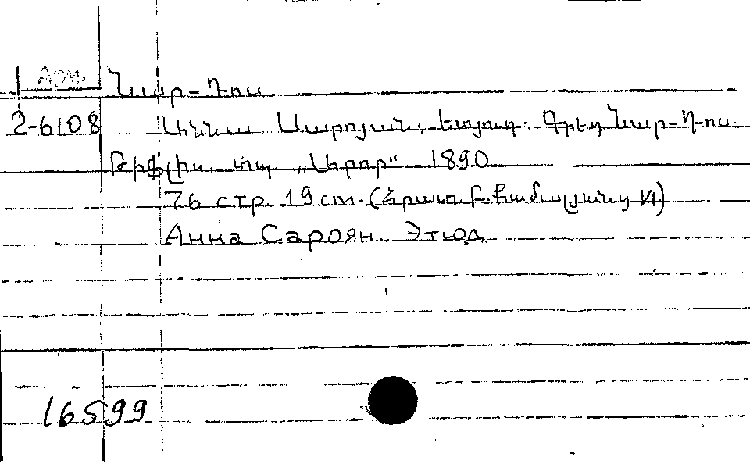 Арм. Նար-Դոս
2-6108 Աննա Սարոյան. Էտյուդ. Գրեց Նար-Դոս.
Թիֆլիս տպ. „Արոր“ 1890
76 стр. 19 см. (Հրատ. Քամալյանց VI)
Анна Сароян. Этюд
16599